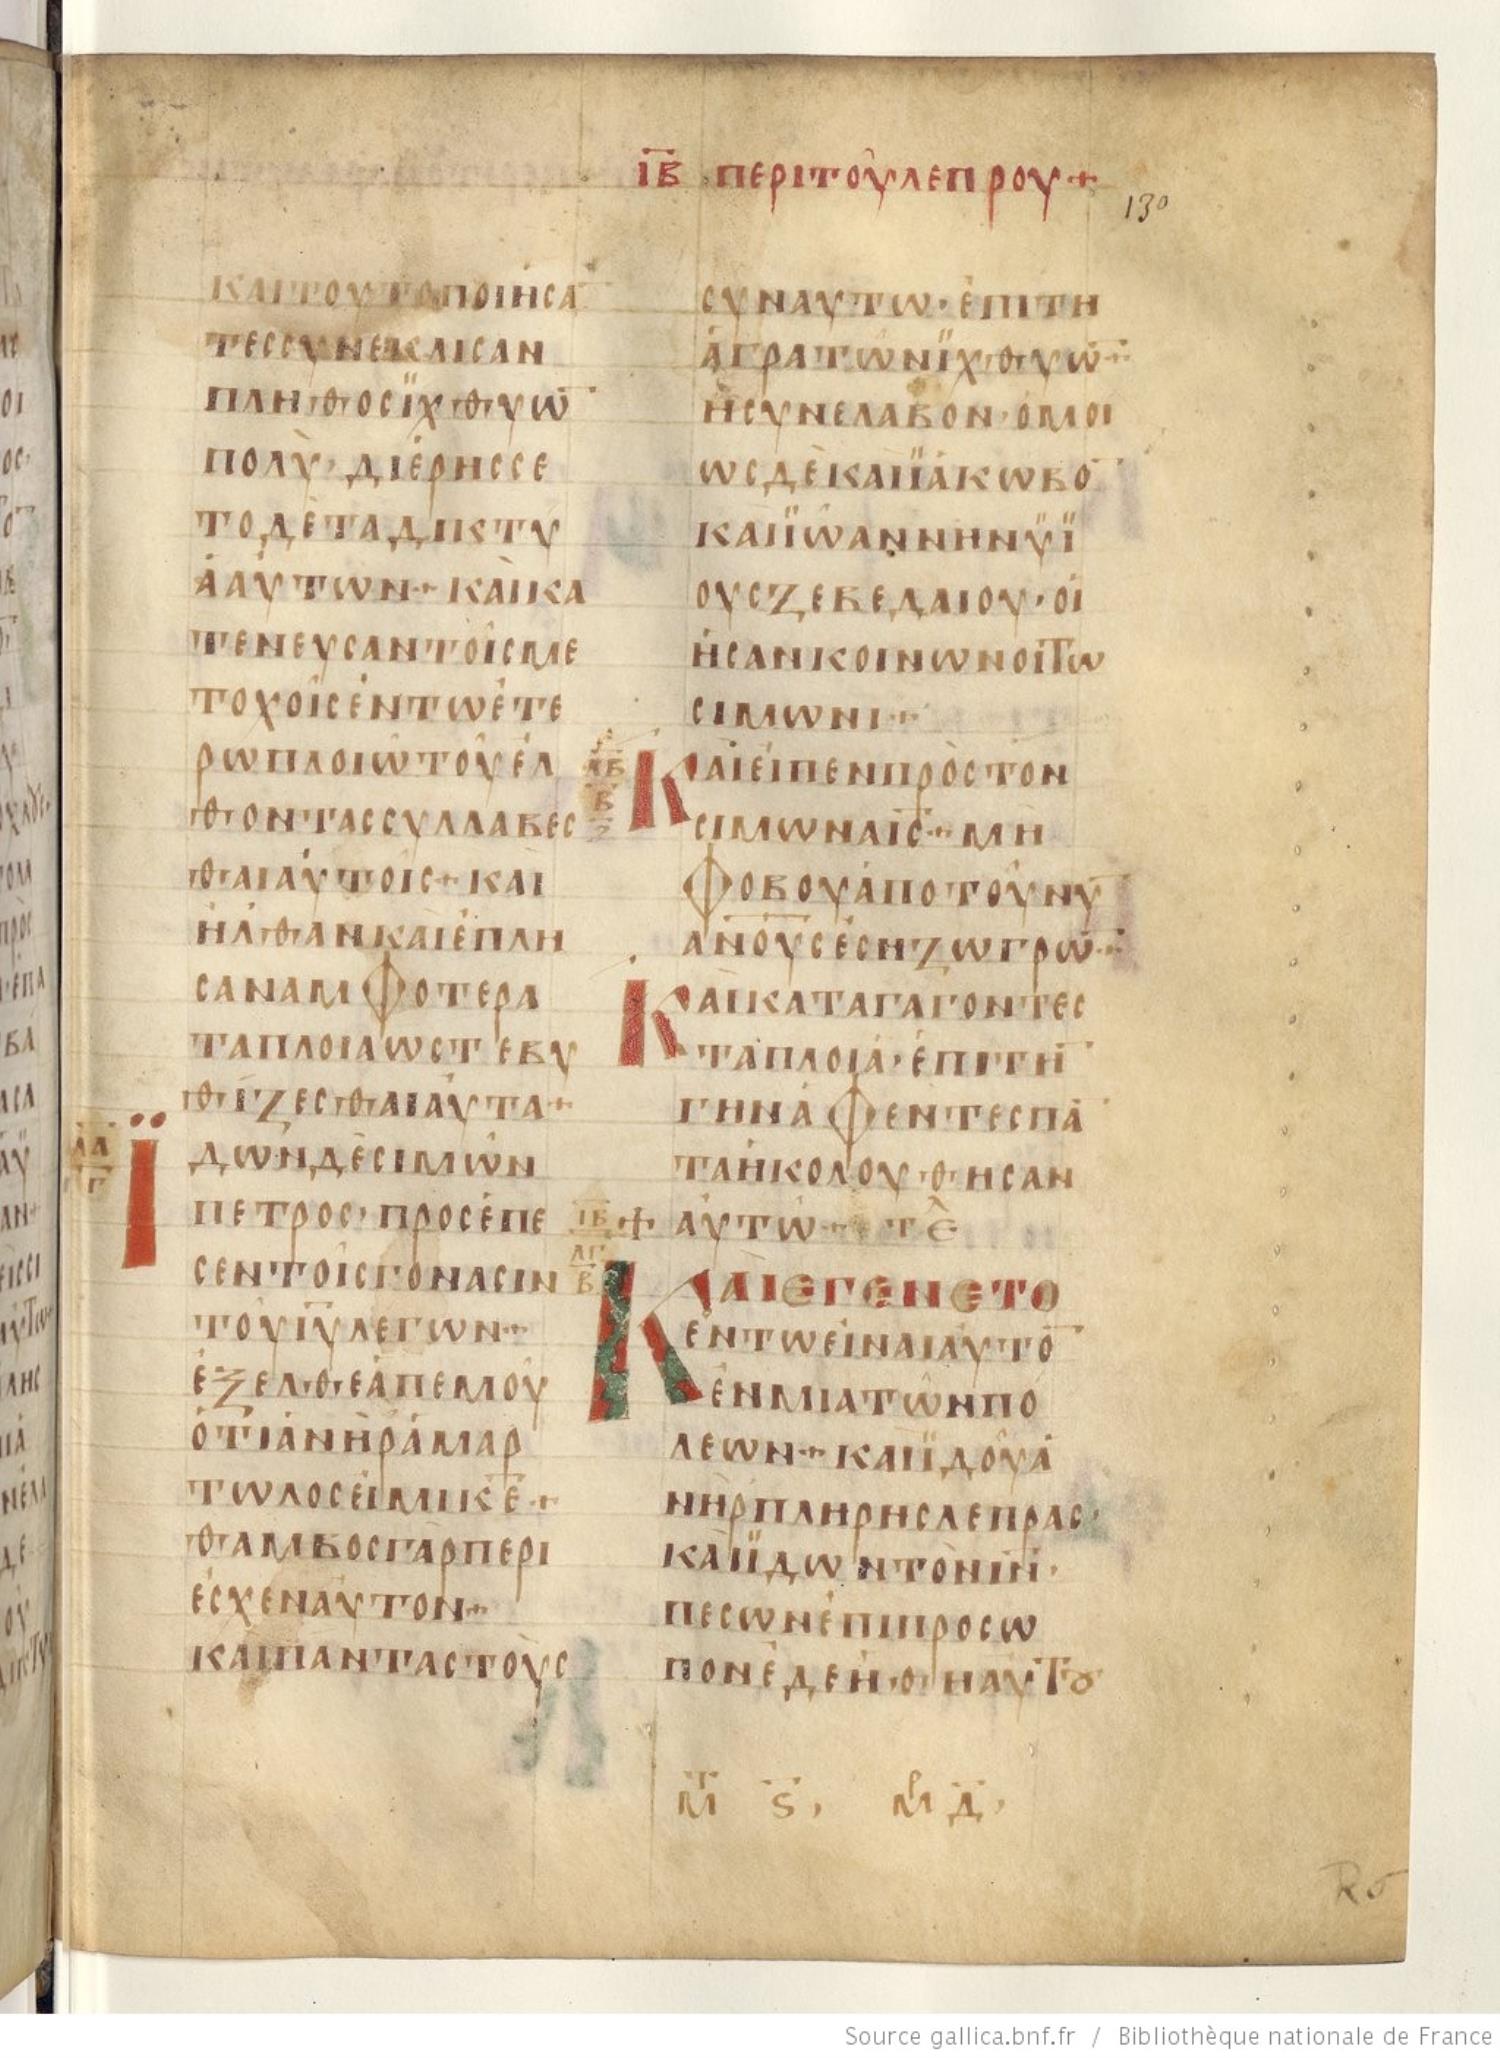 ΙΒ ΠΕΡΙΤΟΥΛΕΠΡΟΥ+
130
ΚΑΙΤΟΥΤΟΠΟΙΗΣΑ̅
ΤΕΣΣΥΝΕΚΛΙΣΑΝ
ΠΛΗΘΟΣΪΧΘΥΩ̅
ΠΟΛΥ· ΔΙΕΡΗΣΣΕ
ΤΟΔΕΤΑΔΙΚΤΥ
ΑΑΥΤΩΝ+ ΚΑΙΚΑ
ΤΕΝΕΥΣΑΝΤΟΙΣΜΕ
ΤΟΧΟΙΣΕΝΤΩΕΤΕ
ΡΩΠΛΟΙΩΤΟΥΕΛ
ΘΟΝΤΑΣΣΥΛΛΑΒΕΣ
ΘΑΙΑΥΤΟΙΣ+ ΚΑΙ
ΗΛΘΑΝΚΑΙΕΠΛΗ
ΣΑΝΑΜΦΟΤΕΡΑ
ΤΑΠΛΟΙΑΩΣΤΕΒΥ
ΘΙΖΕΣΘΑΙΑΥΤΑ+
ΛΑ
Γ
Ϊ
ΔΩΝΔΕΣΙΜΩΝ
ΠΕΤΡΟΣ· ΠΡΟΣΕΠΕ
ΣΕΝΤΟΙΣΓΟΝΑΣΙΝ
ΤΟΥΙ̅Υ̅ΛΕΓΩΝ+
ΕΞΕΛΘΕΑΠΕΜΟΥ
ΟΤΙΑΝΗΡΑΜΑΡ
ΤΩΛΟΣΕΙΜΙΚ̅Ε̅+
ΘΑΜΒΟΣΓΑΡΠΕΡΙ
ΕΣΧΕΝΑΥΤΟΝ+
ΚΑΙΠΑΝΤΑΣΤΟΥΣ
ΣΥΝΑΥΤΩ· ΕΠΙΤΗ
ΑΓΡΑΤΩΝΪΧΘΥΩ̅+
ΗΣΥΝΕΛΑΒΟΝ· ΟΜΟΙ
ΩΣΔΕΚΑΙΪΑΚΩΒΟ̅
ΚΑΙΪΩΑΝΝΗΝΥΪ
ΟΥΣΖΕΒΕΔΑΙΟΥ· ΟΙ
ΗΣΑΝΚΟΙΝΩΝΟΙΤΩ
ΣΙΜΩΝΙ+
ΛΒ
Β
ΚΑΙΕΙΠΕΝΠΡΟΣΤΟΝ
ΣΙΜΩΝΑΙ̅Σ̅+ ΜΗ
ΦΟΒΟΥΑΠΟΤΟΥΝΥ̅
Α̅Ν̅Ο̅Υ̅Σ̅ΕΣΗΖΩΓΡΩ̅+
ΚΑΙΚΑΤΑΓΑΓΟΝΤΕΣ
ΤΑΠΛΟΙΑ· ΕΠΙΤΗ̅
ΓΗΝΑΦΕΝΤΕΣΠΑ̅
ΤΑΗΚΟΛΟΥΘΗΣΑΝ
ΙΒ + ΑΥΤΩ+ ΤΕ
ΛΓ
Β
ΚΑΙΕΓΕΝΕΤΟ
ΕΝΤΩΕΙΝΑΙΑΥΤΟ̅
ΕΝΜΙΑΤΩΝΠΟ
ΛΕΩΝ+ ΚΑΙΪΔΟΥΑ
ΝΗΡΠΛΗΡΗΣΛΕΠΡΑΣ·
ΚΑΙΪΔΩΝΤΟΝΙ̅Ν̅·
ΠΕΣΩΝΕΠΙΠΡΟΣΩ
ΠΟΝΕΔΕΗΘΗΑΥΤȢ
Μ̅ Ϛ, Μ Δ,
R5
Source gallica.bnf.fr / Bibliothèque nationale de France